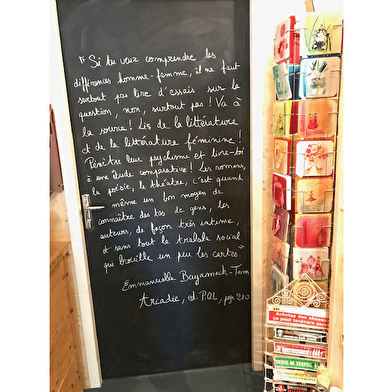 "Si tu veux comprendre les
différences homme-femme, il ne faut
surtout pas lire d'essais sur la
question, non, surtout pas ! Va à
la source ! Lis de la littérature
et de la littérature féminine !
Pénètre leur psychisme et livre-toi
à une étude comparative ! Les romans,
la poésie, le théâtre, c'est quand
même un bon moyen de
connaître des tas de gens, les
auteurs, de façon très intime,
et sans tout le tralala social
qui brouille un peu les cartes."
Emmanuelle Bayamack-Tam
Arcadie, éd. P.O.L, pge 210